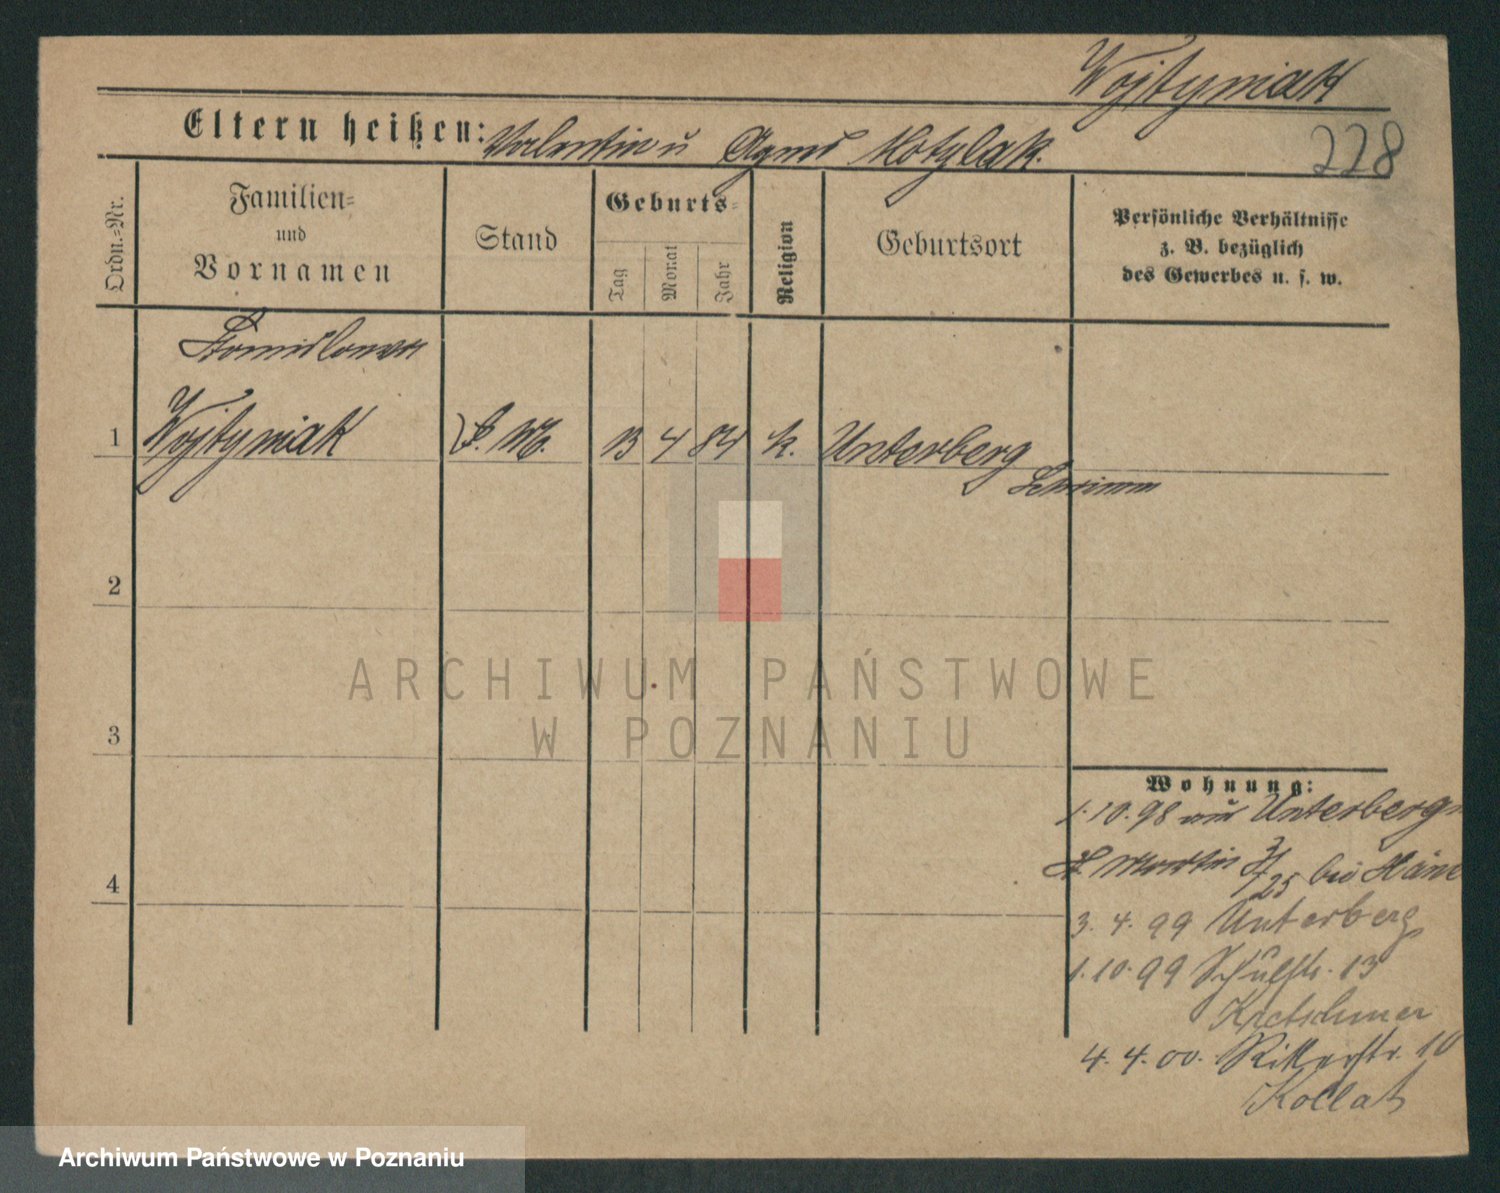 Wojtyniak
Eltern heißen: Valentin u Agnes Motylak.
228
Ordn.=Nr.
Familien=
und
Vornamen
Stand
Geburts=
Tag
Monat
Jahr
Religion
Geburtsort
Persönliche Verhältnisse
z. B. bezüglich
des Gewerbes u. s. w.
Stanislawa
1 Wojtyniak D. M. 13 4 84 k. Unterberg
Schrimm
2
3
4
ARCHIWUM PAŃSTWOWE
W POZNANIU
Wohnung:
1.10.98 aus Unterberg
St Martin 25 bei
3. 4. 99 Unterberg
1.10.99 Schulstr. 13
Kretschmer
4. 4. 00. Ritterstr. 10
Kollat
Archiwum Państwowe w Poznaniu